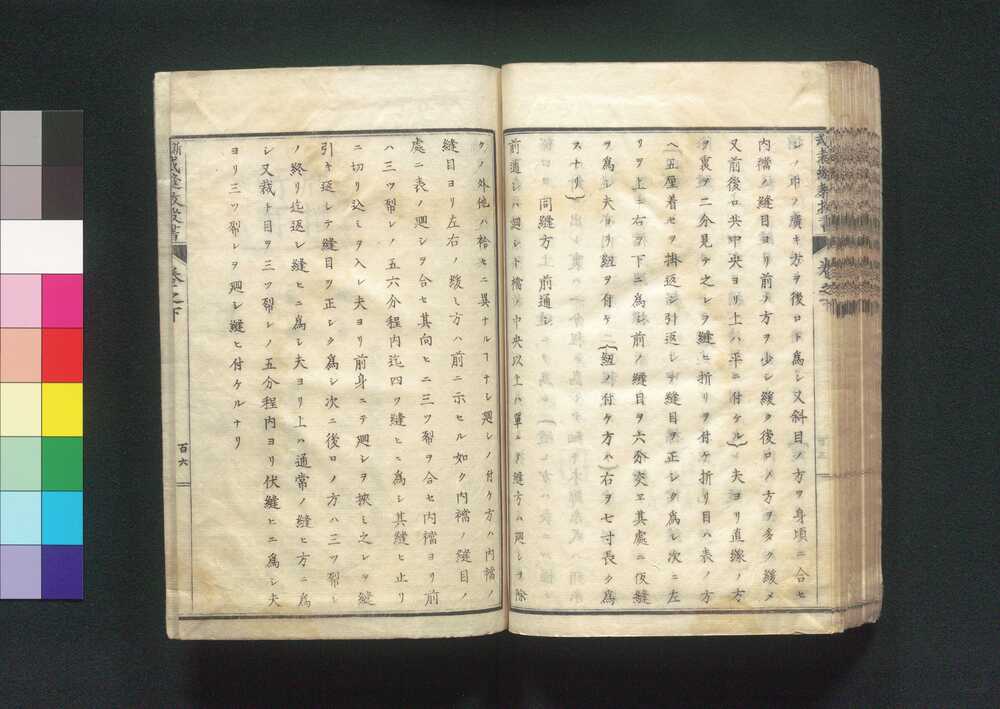 シノ巾ノ廣キ方ヲ後口下為シ又斜目ノ方ヲ身頃ニ合セ
内襠ノ縫目ヨリ前ノ方ヲ少シ緩ク後口ノ方ヲ多ク緩メ
又前後口共中央ヨリ上ハ平ニ付ケル」夫ヨリ直縁ノ方
ヲ裏ヲ二分見テ之レヲ縫ヒ折リヲ付ケ折リ目ハ表ノ方
ヘ五厘着セヲ掛返シ引返シテ縫目ヲ正シク為シ次ニ左
リヲ上ニ右ヲ下ニ為シ前ノ縫目ヲ六分交ヱ其處ニ仮縫
ヲ為シ夫ヨリ紐ヲ付ケ(紐ノ付ケ方ハ)右ヲ七寸長ク為
ス十リ
同縫方上前通シ
前通シハ廻シト襠ノ中央以上ハ單ニテ縫方ハ廻シヲ除
クノ外他ハ袷セニ異ナルヿナシ廻シノ付ケ方ハ内襠ノ
縫目ヨリ左右ノ緩シ方ハ前ニ示セル如ク内襠ノ縫目ノ
處ニ表ノ廻シヲ合セ其向ヒニ三ツ裂ヲ合セ内襠ヨリ前
ハ三ツ裂レノ五六分程内迄四ツ縫ヒニ為シ其縫ヒ止リ
ニ切リ込ミヲ入レ夫ヨリ前身ニテ廻シヲ挾ミ之レヲ縫
引キ返シテ縫目ヲ正シク為シ次ニ後口ノ方ハ三ツ裂レ
ノ終リ迄返シ縫ヒニ為シ夫ヨリ上ハ通常ノ縫ヒ方ニ為
シ又裁ト目ヲ三ツ裂レノ五分程内ヨリ伏縫ヒニ為シ夫
ヨリ三ツ裂レヲ廻シ縫ヒ付ケルナリ
裁縫教授書
巻之下
百六